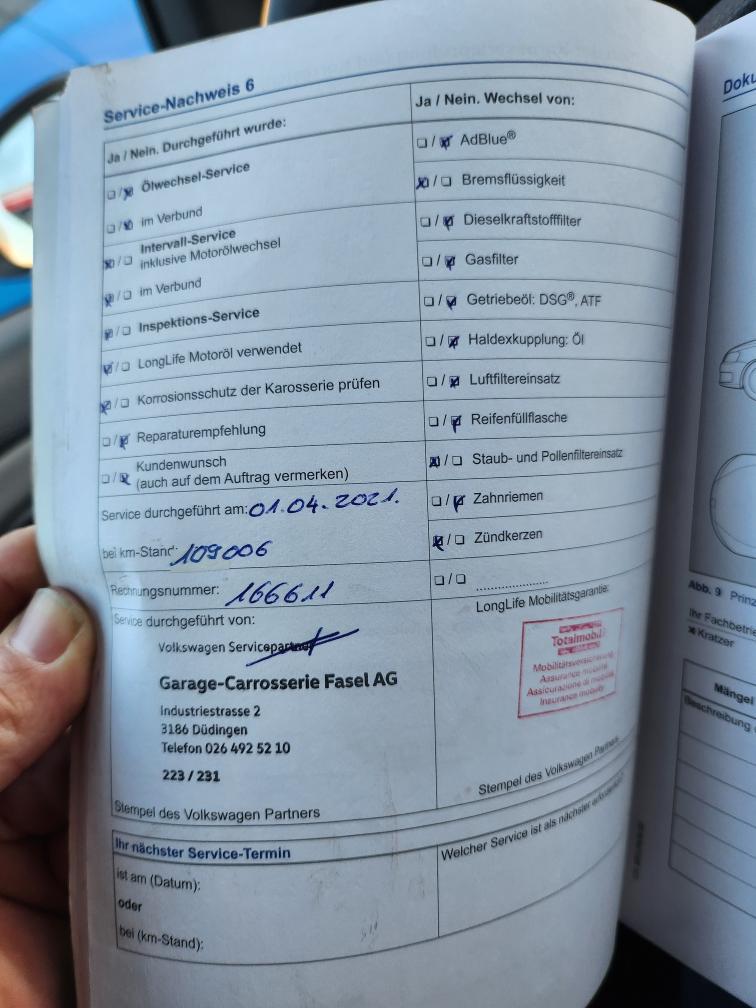 Service-Nachweis 6
Ja / Nein. Durchgeführt wurde:
☐/☒ Ölwechsel-Service
☐/☒ im Verbund
☒/☐ Intervall-Service
inklusive Motorölwechsel
☒/☐ im Verbund
☒/☐ Inspektions-Service
☒/☐ LongLife Motoröl verwendet
☒/☐ Korrosionsschutz der Karosserie prüfen
☐/☒ Reparaturempfehlung
☐/☒ Kundenwunsch
(auch auf dem Auftrag vermerken)
Service durchgeführt am: 01.04.2021.
bei km-Stand: 109006
Rechnungsnummer: 166611
Service durchgeführt von:
Volkswagen Servicepartner
Garage-Carrosserie Fasel AG
Industriestrasse 2
3186 Düdingen
Telefon 026 492 52 10
223 / 231
Stempel des Volkswagen Partners
Ja / Nein. Wechsel von:
☐/☒ AdBlue®
☒/☐ Bremsflüssigkeit
☐/☒ Dieselkraftstofffilter
☐/☒ Gasfilter
☐/☒ Getriebeöl: DSG®, ATF
☐/☒ Haldexkupplung: Öl
☐/☒ Luftfiltereinsatz
☐/☒ Reifenfüllflasche
☒/☐ Staub- und Pollenfiltereinsatz
☐/☒ Zahnriemen
☒/☐ Zündkerzen
☐/☐ ....................
LongLife Mobilitätsgarantie:
Totalmobil
Mobilitätsversicherung
Assurance mobilité
Assicurazione di mobilità
Insurance mobility
Stempel des Volkswagen Partners
Ihr nächster Service-Termin
ist am (Datum):
oder
bei (km-Stand):
Welcher Service ist als nächster
Doku
Abb. 9 Prinz
Ihr Fachbetrie
Kratzer
Mängel
Beschreibung